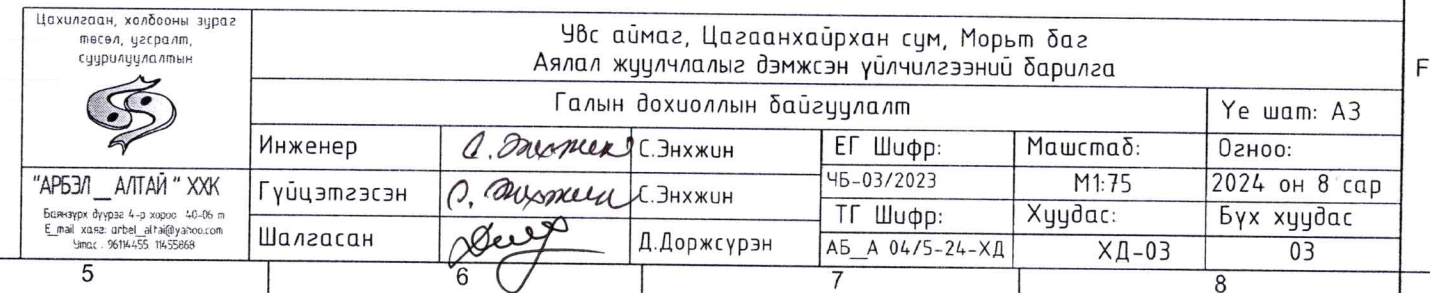 Цахилгаан, холбооны зураг
төсөл, угсралт,
суурилуулалтын
"АРБЭЛ__АЛТАЙ" ХХК
Баянзүрх дүүрэг 4-р хороо 40-06 т
E_mail хаяг: arbel_altai@yahoo.com
Утас : 96114455 11455868
Увс аймаг, Цагаанхайрхан сум, Морьт баг
Аялал жуулчлалыг дэмжсэн үйлчилгээний барилга
Галын дохиоллын байгуулалт
Үе шат: АЗ
Инженер С.Энхжин С.Энхжин ЕГ Шифр: Машстаб: Огноо:
Гүйцэтгэсэн С.Энхжин С.Энхжин ЧБ-03/2023 М1:75 2024 он 8 сар
Шалгасан Д.Доржсүрэн ТГ Шифр: Хуудас: Бүх хуудас
АБ__А 04/5-24-ХД ХД-03 03
5 6 7 8
F